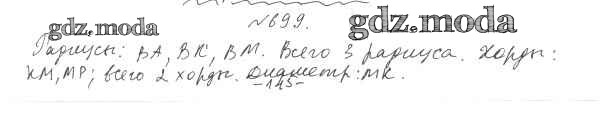 gdz.moda №699. gdz.moda
Радиусы: ВА, ВК, ВМ. Всего 3 радиуса. Хорды:
КМ, МР; всего 2 хорды. Диаметр: МК.
-145-